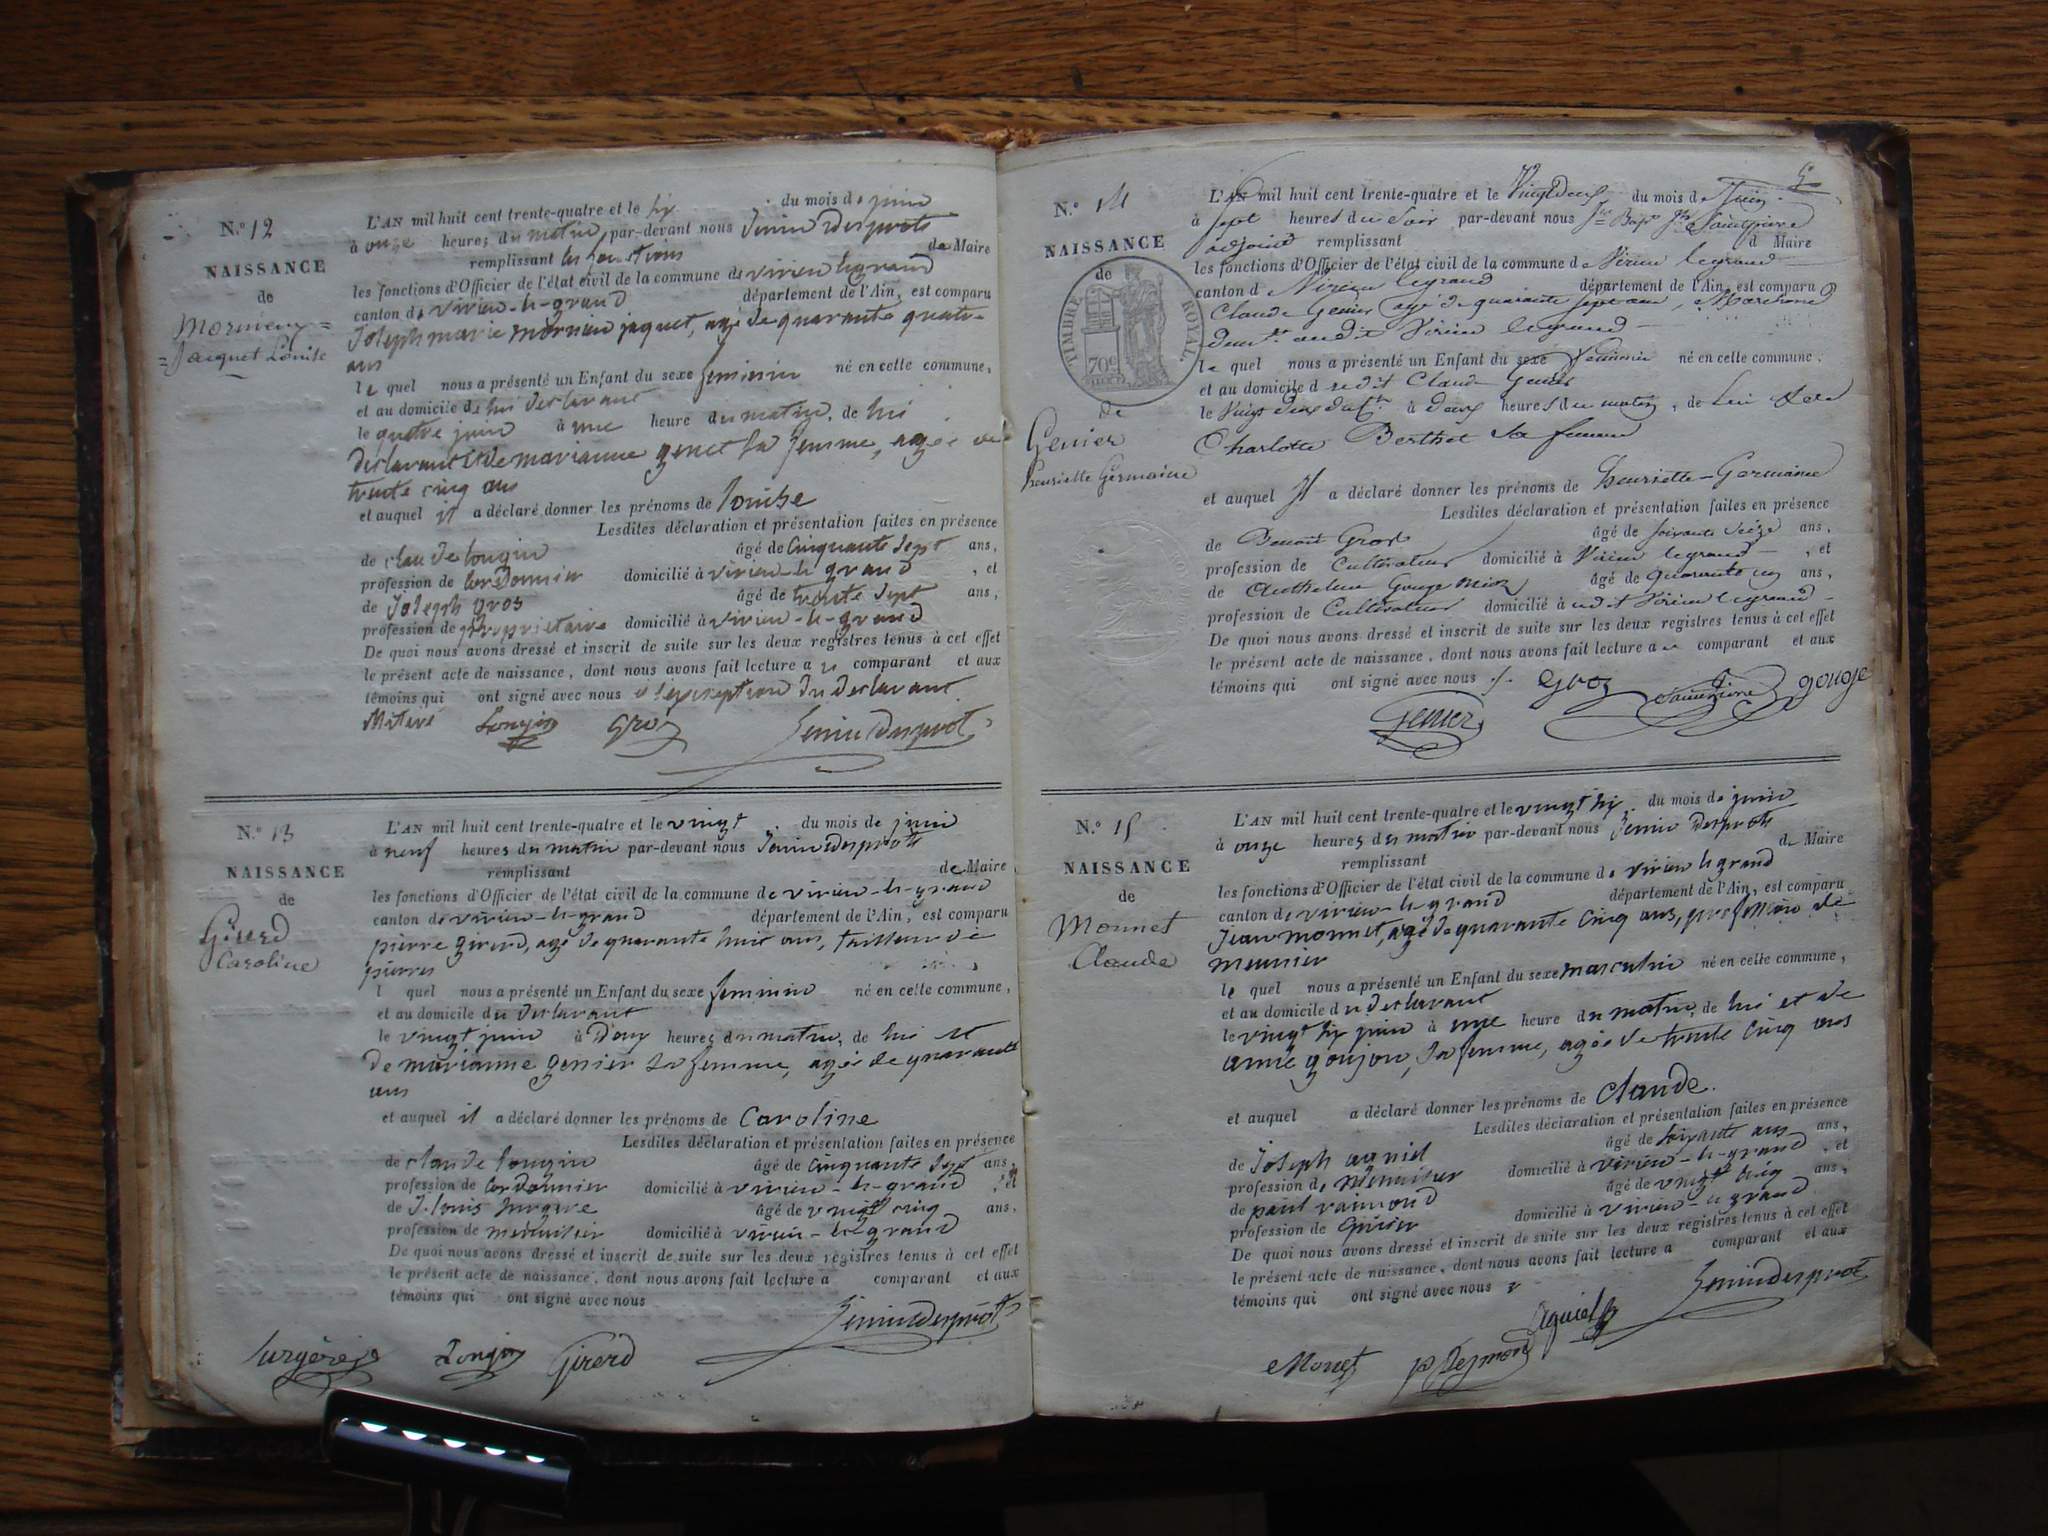 N.° 12
NAISSANCE
de
Mornieux=
=Jacquet Louise
L'AN mil huit cent trente-quatre et le six du mois de juin
à onze heures du matin, par-devant nous Jenin Desprots
remplissant les fonctions de Maire
les fonctions d'Officier de l'état civil de la commune de virieu legrand
canton de virieu-le-grand département de l'Ain, est comparu
Joseph marie mornieu jaquet, agé de quarante quatre
ans
le quel nous a présenté un Enfant du sexe feminin né en cette commune,
et au domicile de lui declarant
le quatre juin à une heure du matin, de lui
declarant et de marianne genet sa femme, agée de
trente cinq ans
et auquel il a déclaré donner les prénoms de louise
Lesdites déclaration et présentation faites en présence
de claude longin âgé de cinquante sept ans,
profession de cordonnier domicilié à virieu-le grand , et
de Joseph gros âgé de trente sept ans,
profession de propriétaire domicilié à virieu-le-grand
De quoi nous avons dressé et inscrit de suite sur les deux registres tenus à cet effet
le présent acte de naissance, dont nous avons fait lecture au comparant et aux
témoins qui ont signé avec nous a lexception du declarant
illitéré Longin Gros Jenin Desprots
N.° 13
NAISSANCE
de
Girerd
Caroline
L'AN mil huit cent trente-quatre et le vingt du mois de juin
à neuf heures du matin par-devant nous Jenin Desprots
remplissant de Maire
les fonctions d'Officier de l'état civil de la commune de virieu-le-grand
canton de virieu-le-grand département de l'Ain, est comparu
pierre girerd, agé de quarante huit ans, tailleur de
pierres
l quel nous a présenté un Enfant du sexe feminin né en cette commune,
et au domicile du declarant
le vingt juin à Deux heures du matin, de lui et
de marianne genier sa femme, agée de quarante
ans
et auquel il a déclaré donner les prénoms de Caroline
Lesdites déclaration et présentation faites en présence
de claude longin âgé de cinquante sept ans,
profession de cordonnier domicilié à virieu-le-grand , et
de J. louis âgé de vingt cinq ans,
profession de menuisier domicilié à virieu-le-grand
De quoi nous avons dressé et inscrit de suite sur les deux registres tenus à cet effet
le présent acte de naissance, dont nous avons fait lecture a comparant et aux
témoins qui ont signé avec nous
Jenin Desprots
Longin Girerd
N.° 14
NAISSANCE
de
TIMBRE ROYAL
70c
de
Genier
henriette Germaine
L'AN mil huit cent trente-quatre et le Vingt deux du mois de Juin
à sept heures du Soir par-devant nous
adjoint remplissant d Maire
les fonctions d'Officier de l'état civil de la commune de Virieu legrand
canton d Virieu legrand département de l'Ain, est comparu
Claude Genier agé de quarante sept ans, Marchand
demt. audit Virieu legrand
le quel nous a présenté un Enfant du sexe feminin né en cette commune,
et au domicile d dit Claude Genier
le Vingt deux à Deux heures du matin, de Lui et de
Charlotte Berthet sa femme
et auquel Il a déclaré donner les prénoms de henriette-Germaine
Lesdites déclaration et présentation faites en présence
de Benoit Gros âgé de soixante seize ans,
profession de Cultivateur domicilié à Virieu legrand , et
de Anthelme Gouge âgé de quarante ans,
profession de Cultivateur domicilié à udit Virieu legrand
De quoi nous avons dressé et inscrit de suite sur les deux registres tenus à cet effet
le présent acte de naissance, dont nous avons fait lecture a comparant et aux
témoins qui ont signé avec nous ./. Groz gouge
Genier
N.° 15
NAISSANCE
de
Monnet
Claude
L'AN mil huit cent trente-quatre et le vingt six du mois de juin
à onze heures du matin par-devant nous Jenin Desprots
remplissant de Maire
les fonctions d'Officier de l'état civil de la commune de virieu le grand
canton de virieu-le-grand département de l'Ain, est comparu
Jean monnet, agé de quarante cinq ans, profession de
meunier
le quel nous a présenté un Enfant du sexe masculin né en cette commune,
et au domicile du declarant
le vingt six juin à une heure du matin, de lui et de
anne goujon, sa femme, agée de trente cinq ans
et auquel a déclaré donner les prénoms de claude.
Lesdites déclaration et présentation faites en présence
de Joseph agniel âgé de soixante ans ans,
profession de menuisier domicilié à virieu-le-grand , et
de paul raimond âgé de vingt cinq ans,
profession de domicilié à virieu-le grand
De quoi nous avons dressé et inscrit de suite sur les deux registres tenus à cet effet
le présent acte de naissance, dont nous avons fait lecture a comparant et aux
témoins qui ont signé avec nous
Jenin Desprots
Monet